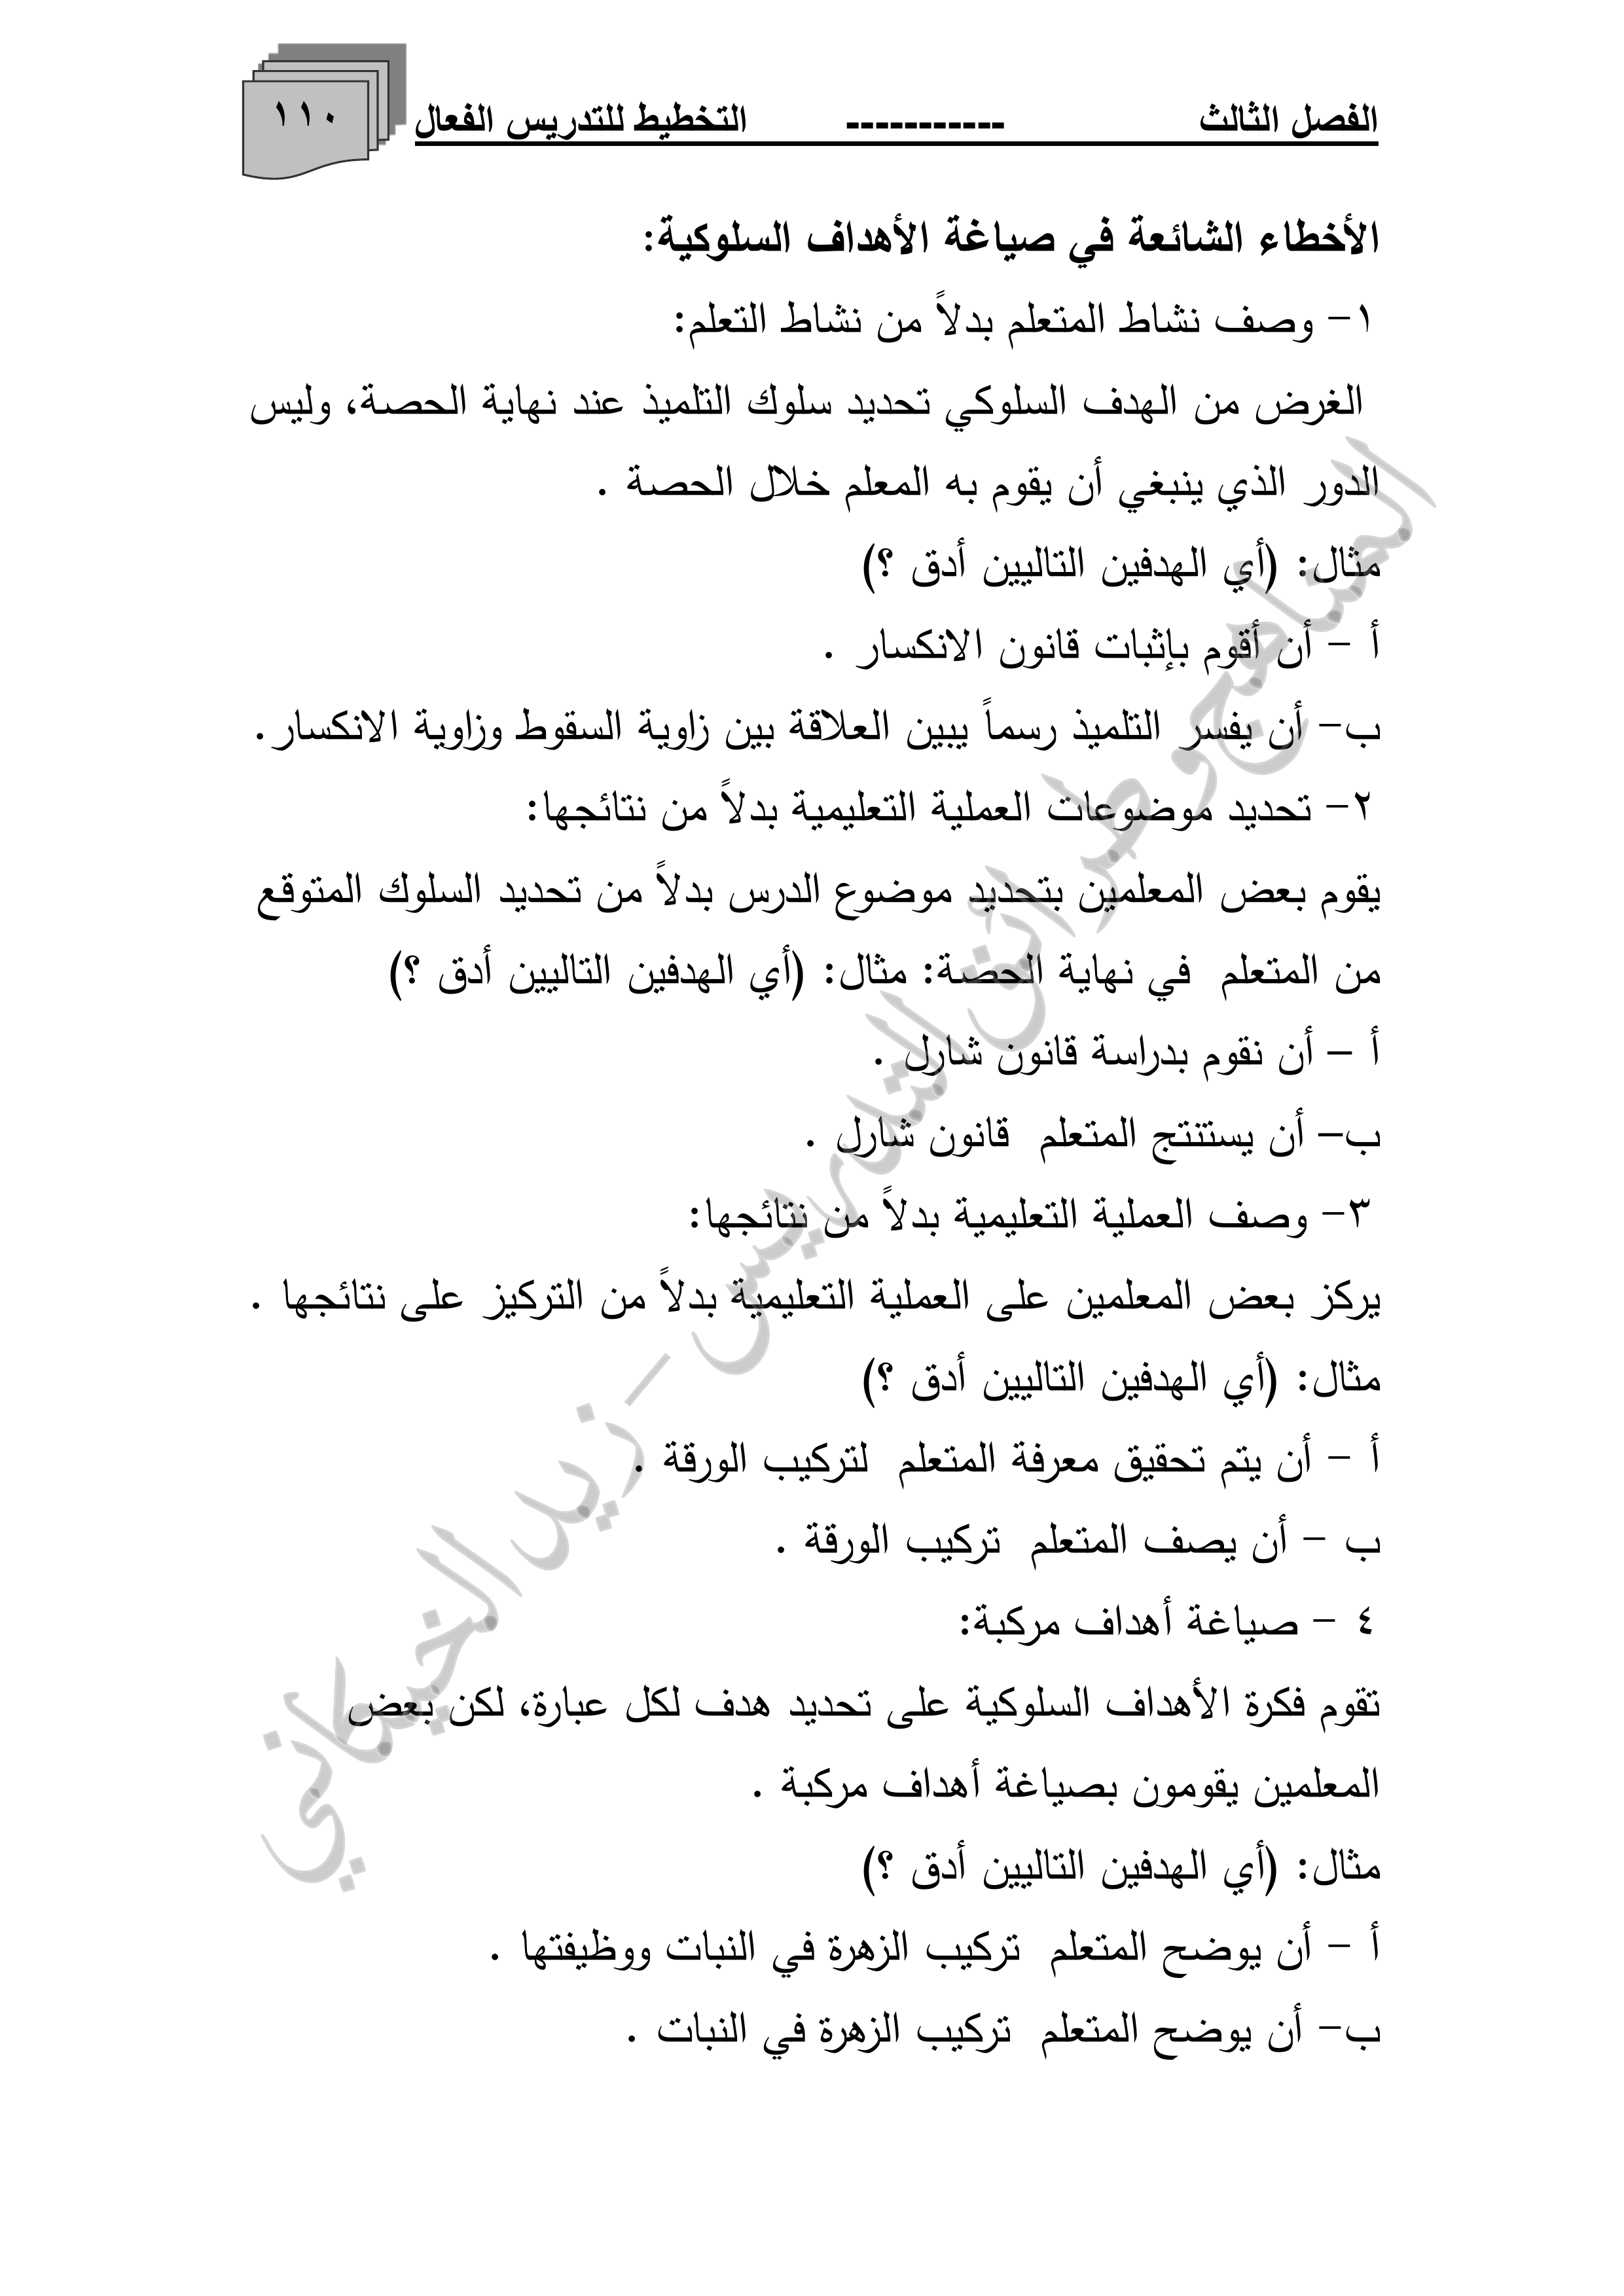 الفصل الثالث ----------- التخطيط للتدريس الفعال ١١٠
الأخطاء الشائعة في صياغة الأهداف السلوكية:
١- وصف نشاط المتعلم بدلاً من نشاط التعلم:
الغرض من الهدف السلوكي تحديد سلوك التلميذ عند نهاية الحصة، وليس
الدور الذي ينبغي أن يقوم به المعلم خلال الحصة .
مثال: (أي الهدفين التاليين أدق ؟)
أ - أن أقوم بإثبات قانون الانكسار .
ب- أن يفسر التلميذ رسماً يبين العلاقة بين زاوية السقوط وزاوية الانكسار.
٢- تحديد موضوعات العملية التعليمية بدلاً من نتائجها:
يقوم بعض المعلمين بتحديد موضوع الدرس بدلاً من تحديد السلوك المتوقع
من المتعلم في نهاية الحصة: مثال: (أي الهدفين التاليين أدق ؟)
أ – أن نقوم بدراسة قانون شارل .
ب– أن يستنتج المتعلم قانون شارل .
٣- وصف العملية التعليمية بدلاً من نتائجها:
يركز بعض المعلمين على العملية التعليمية بدلاً من التركيز على نتائجها .
مثال: (أي الهدفين التاليين أدق ؟)
أ - أن يتم تحقيق معرفة المتعلم لتركيب الورقة .
ب - أن يصف المتعلم تركيب الورقة .
٤ - صياغة أهداف مركبة:
تقوم فكرة الأهداف السلوكية على تحديد هدف لكل عبارة، لكن بعض
المعلمين يقومون بصياغة أهداف مركبة .
مثال: (أي الهدفين التاليين أدق ؟)
أ - أن يوضح المتعلم تركيب الزهرة في النبات ووظيفتها .
ب- أن يوضح المتعلم تركيب الزهرة في النبات .
المناهج وطرائق التدريس - زيد الخيكاني